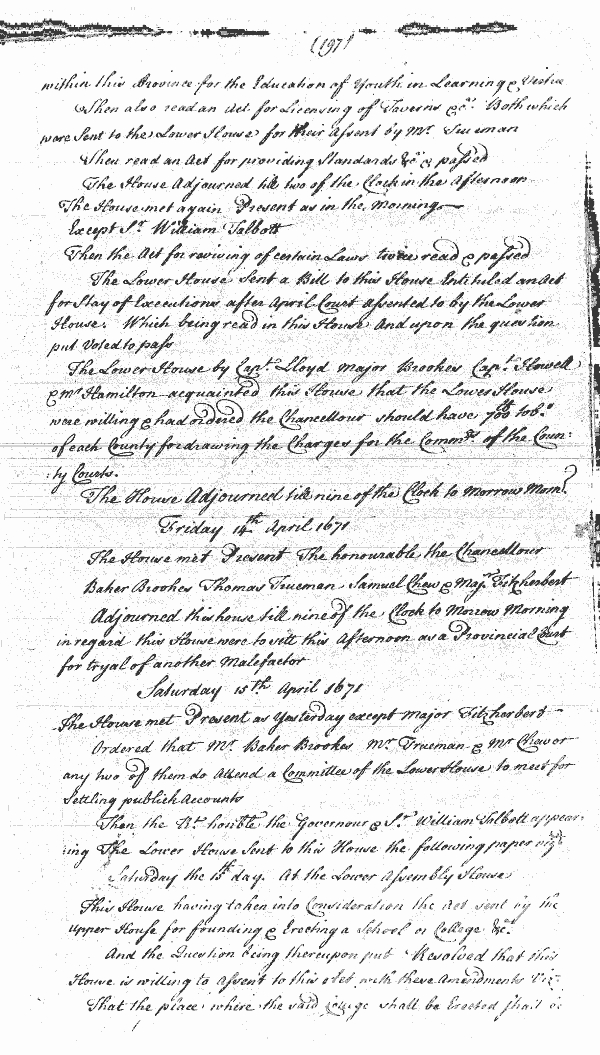 (197)
within this Province for the Education of Youth in Learning & Vertue
Then also read an Act for Licensing of Taverns &c.ª Both which
were Sent to the Lower House for their Assent by Mr. Trueman
Then read an Act for providing Standards &c.ª & passed
The House Adjourned till two of the Clock in the Afternoon
The House met again Present as in the Morning
Except Sr. William Talbott
Then the Act for reviving of certain Laws twice read & passed
The Lower House sent a Bill to this House Entituled an Act
for Stay of Executions after April Court assented to by the Lower
House. Which being read in this House And upon the question
put Voted to pass
The Lower House by Capt. Lloyd Major Brookes Capt. Howell
& Mr Hamilton acquainted this House that the Lower House
were willing & had ordered the Chancellour should have 700lt tob.º
of each County for drawing the Charges for the Commrs of the Coun:
:ty Courts.
The House Adjourned till nine of the Clock to Morrow Morn.
Friday 14th April 1671
The House met Present The honourable the Chancellour
Baker Brookes Thomas Trueman Samuel Chew & Majr Fitzherbert
Adjourned this house till nine of the Clock to Morrow Morning
in regard this House were to sitt this Afternoon as a Provincial Court
for tryal of another Malefactor
Saturday 15th April 1671
The House met Present as Yesterday except Major Fitzherbert
Ordered that Mr. Baker Brookes Mr. Trueman & Mr Chew or
any two of them do Attend a Committee of the Lower House to meet for
settling publick Accounts
Then the Rt. honble. the Governour & Sr. William Talbott appear:
:ing The Lower House Sent to this House the following paper vizt
Saturday the 15th day. At the Lower Assembly House
This House having taken into Consideration the Act sent by the
upper House for founding & Erecting a School or College &c.ª
And the Question being thereupon put Resolved that this
House is willing to Assent to this Act with these Amendments Viz.
That the place where the said College shall be Erected shall be